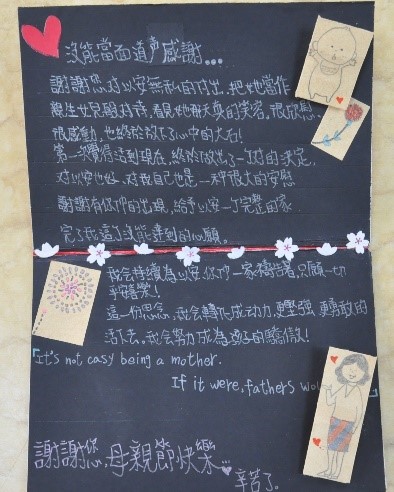 沒能當面道声感謝...
謝謝您對以安無私的付出,把她當作
親生女兒對待,看見她那天真的笑容,很欣慰,
很感動,也終於放下心中的大石!
第一次覺得活到現在,終於做出了一個對的決定,
對以安也好、對我自己也是一种很大的安慰
謝謝有你们的出現,給予以安一个完整的家
完了我這个沒能達到的心願。
我会持續為以安、你们一家禱告著,只願一切
平安喜樂!
這一份思念,我会轉化成动力,更堅強、更勇敢的
活下去。我会努力成為孩子的驕傲!
「It's not easy being a mother.
If it were, fathers wo
謝謝您,母親節快樂...
辛苦了。